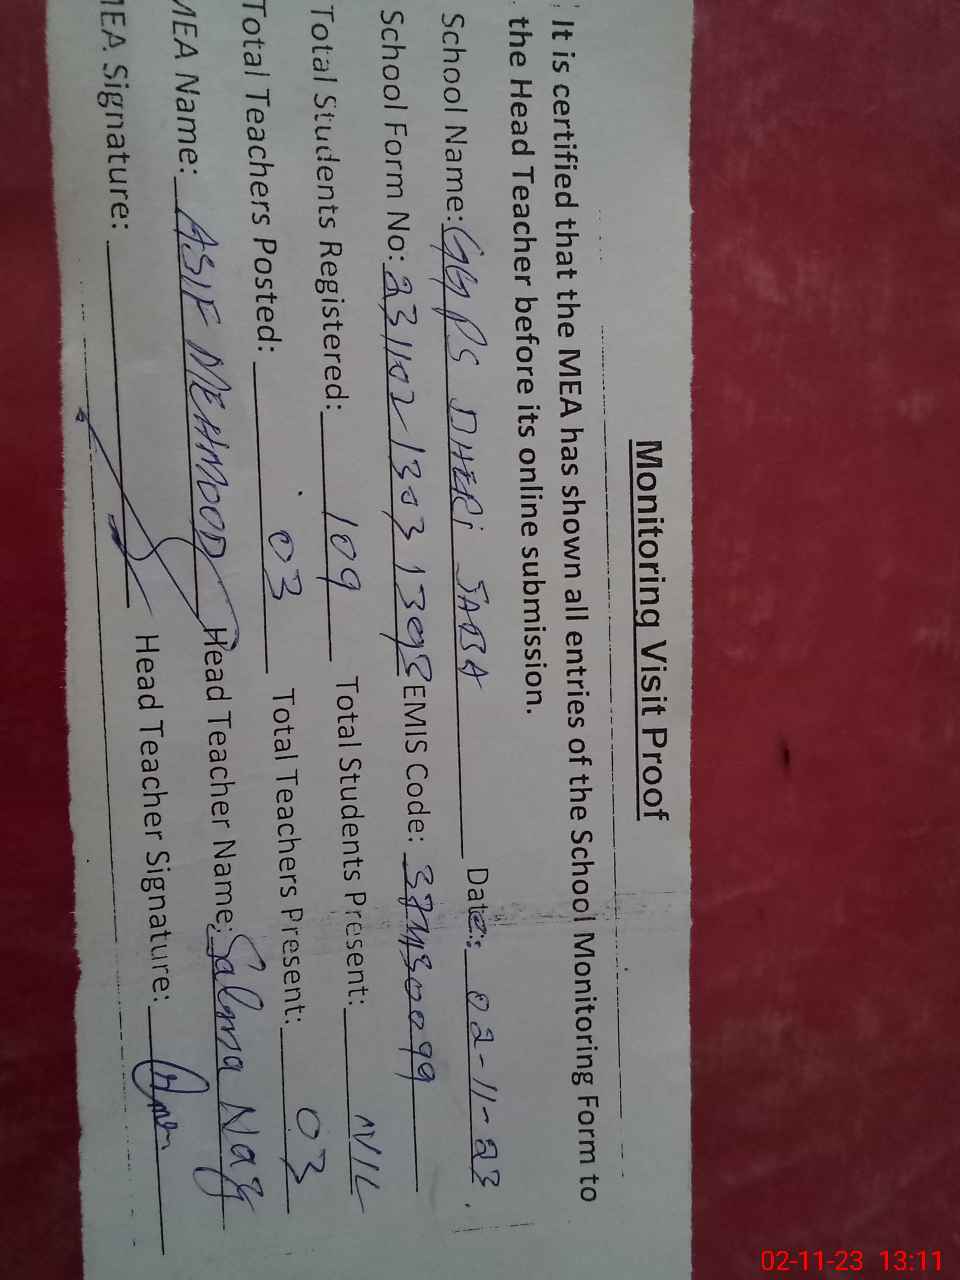 Monitoring Visit Proof
It is certified that the MEA has shown all entries of the School Monitoring Form to
the Head Teacher before its online submission.
School Name: GGPS DHERi SABA Date: 02-11-23.
School Form No: 231102 1303 1398 EMIS Code: 37430099
Total Students Registered: 109 Total Students Present: NIL
Total Teachers Posted: 03 Total Teachers Present: 03
MEA Name: ASIF MEHMOOD Head Teacher Name: Salma Naz
MEA Signature: Head Teacher Signature:
02-11-23 13:11